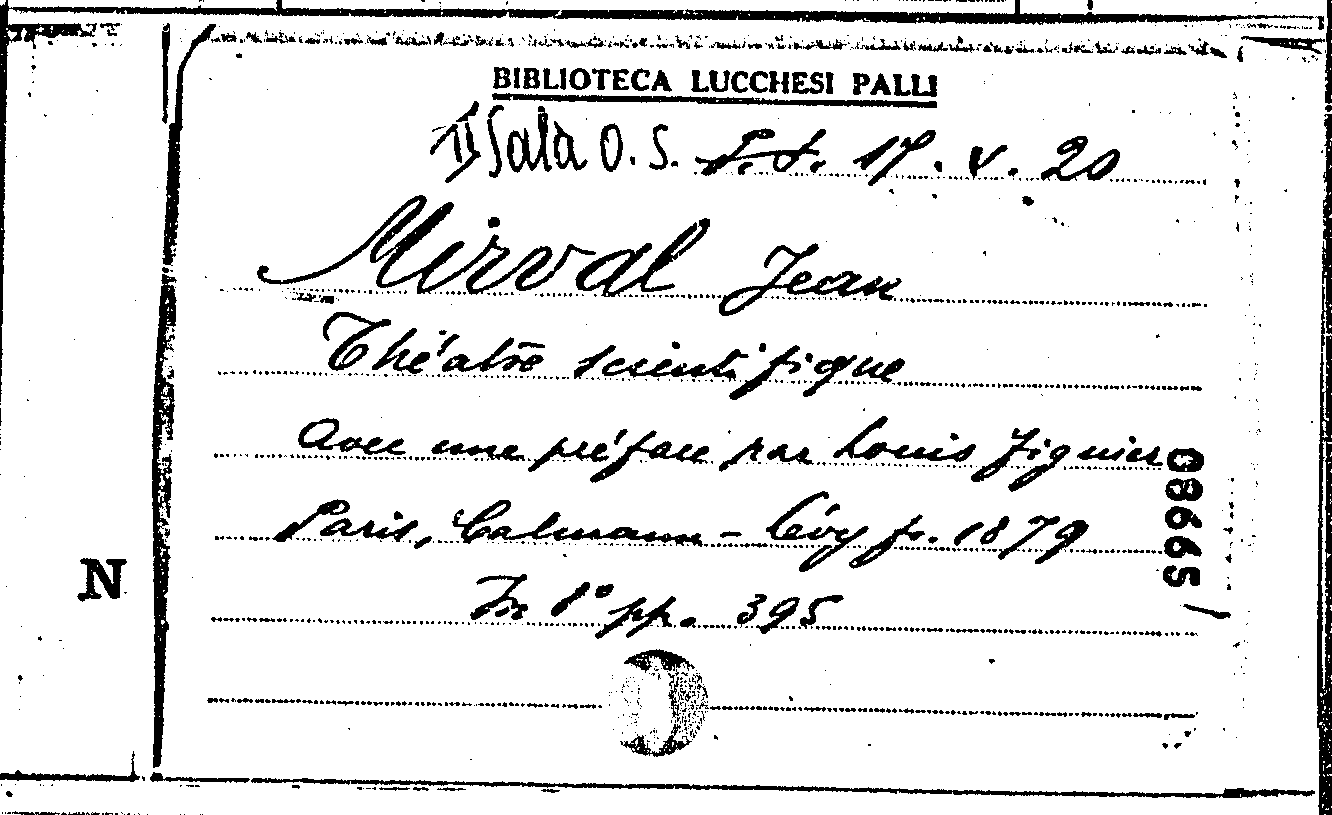 BIBLIOTECA LUCCHESI PALLI
II Sala O. S. 17. V. 20
Mirval Jean
Théatre scientifique
Avec une préface par Louis Figuier
Paris, Calmann-Lévy fr. 1879
In 8° pp. 395
59980
N